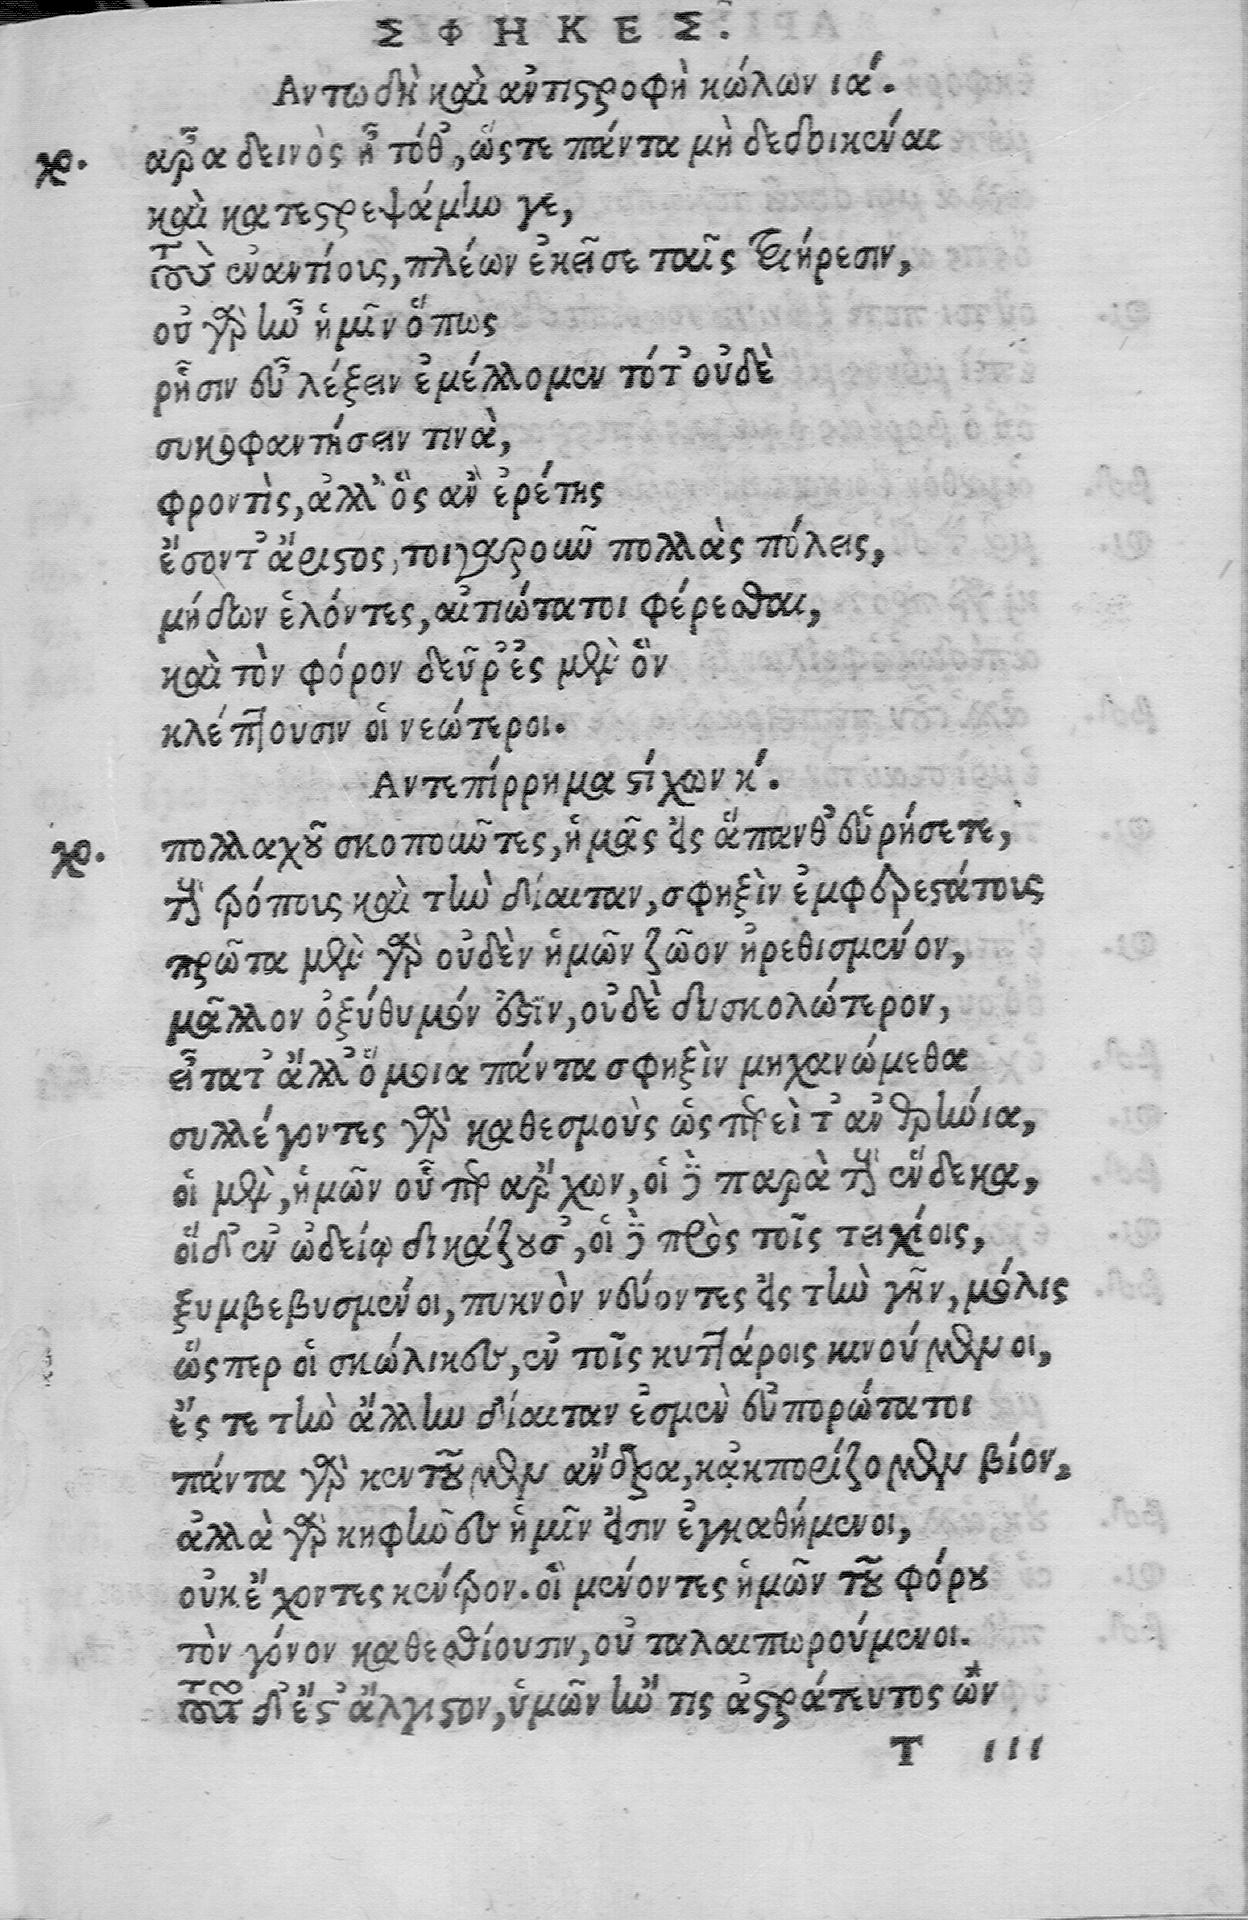 ΣΦΗΚΕΣ.
Αντωδὴ καὶ ἀντιστροφὴ κώλων ιά.
χο. ἆρα δεινὸς ἦ τόθ', ὥστε πάντα μὴ δεδοικέναι
καὶ κατεστρεψάμην γε,
τοὺς ἐναντίους, πλέων ἐκεῖσε ταῖς τριήρεσιν,
οὐ γὰρ ἦν ἡμῖν ὅπως
ῥῆσιν εὖ λέξειν ἐμέλλομεν τότ' οὐδὲ
συκοφαντήσειν τινὰ,
φροντὶς, ἀλλ' ὃς ἂν ἐρέτης
ἔσοιτ' ἄριστος, τοιγαροῦν πολλὰς πόλεις,
μήδων ἑλόντες, αἰτιώτατοι φέρεσθαι,
καὶ τὸν φόρον δεῦρ' ἐς μὲν ὃν
κλέπτουσιν οἱ νεώτεροι.
Αντεπίρρημα στίχων κ΄.
χο. πολλαχοῦ σκοποῦντες, ἡμᾶς εἰς ἅπανθ' εὑρήσετε,
τοὺς τρόπους καὶ τὴν δίαιταν, σφηξὶν ἐμφερεστάτους
πρῶτα μὲν γὰρ οὐδὲν ἡμῶν ζῶον ἠρεθισμένον,
μᾶλλον ὀξύθυμόν ἐστιν, οὐδὲ δυσκολώτερον,
εἶτα τ' ἄλλ' ὅμοια πάντα σφηξὶν μηχανώμεθα
συλλέγοντες γὰρ καθεσμοὺς ὡσπερεὶ τ' ἀνθρήνια,
οἱ μὲν, ἡμῶν οὗπερ ἄρχων, οἱ δὲ παρὰ τοὺς ἕνδεκα,
οἵδ' ἐν ᾠδείῳ δικάζουσ', οἱ δὲ πρὸς τοῖς τειχίοις,
ξυμβεβυσμένοι, πυκνὸν νεύοντες εἰς τὴν γῆν, μόλις
ὥσπερ οἱ σκώληκες, ἐν τοῖς κυττάροις κινούμενοι,
ἔς τε τὴν ἄλλην δίαιταν ἐσμὲν εὐπορώτατοι
πάντα γὰρ κεντοῦμεν ἄνδρα, κἀκπορίζομεν βίον,
ἀλλὰ γὰρ κηφῆνες ἡμῖν εἰσιν ἐγκαθήμενοι,
οὐκ ἔχοντες κέντρον. οἳ μένοντες ἡμῶν τοῦ φόρου
τὸν γόνον κατεσθίουσιν, οὐ ταλαιπωρούμενοι.
τοῦτο δ' ἔστ' ἄλγιστον, ὑμῶν ἤν τις ἀστράτευτος ὢν*
Τ ιιι